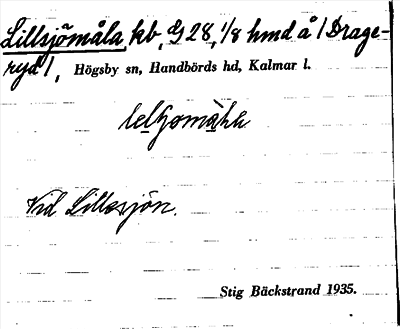 Lillsjömåla, kb, G 28, 1/8 hmd å 1 Drage-
ryd 1, Högsby sn, Handbörds hd, Kalmar l.
Vid Lillsjön.
Stig Bäckstrand 1935.